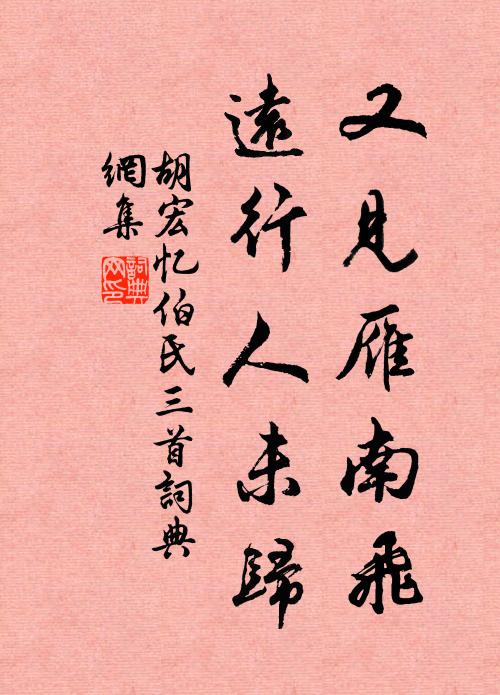 又見雁南飛
遠行人未歸
胡宏忆伯氏三首詞典
網集
詞典網印